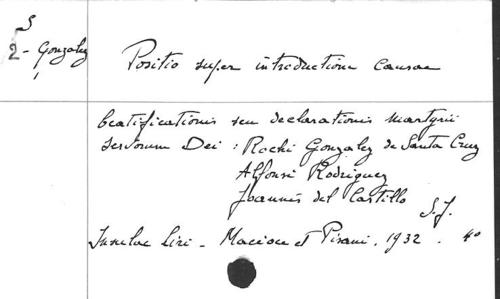 S
2 - Gonzalez
1
Positio super introductione Causae
beatificationis seu declarationis martyrii
servorum Dei : Rochi Gonzalez de Santa Cruz
Alfonsi Rodriguez
Joannis del Castillo
S.J.
Insulae Liri - Macioce et Pisani, 1932 . 4º